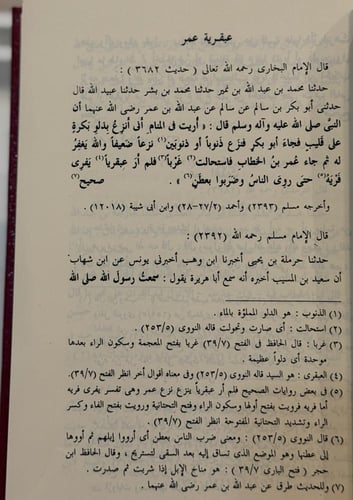 عبقرية عمر
قال الإمام البخارى رحمه الله تعالى ( حديث ٣٦٨٢ ) :
حدثنا محمد بن عبد الله بن نمير حدثنا محمد بن بشر حدثنا عبيد الله قال
حدثنى أبو بكر بن سالم عن سالم عن عبد الله بن عمر رضى الله عنهما أن
النبى صلى الله عليه وآله وسلم قال : « أريت فى المنام أنى أنزعُ بدلو بَكرةٍ
على قَليبٍ فجاءَ أبو بكرٍ فنزع ذَنوباً أو ذَنوبَين(١) نزعاً ضَعيفاً واللهُ يَغفِرُ
له ثم جاء عُمرُ بنُ الخطابِ فاستحالت(٢) غَرْباً(٣) فلم أرَ عبقرياً(٤) يَفرِى
فَرْيَهُ(٥) حتى رَوِىَ الناسُ وضَرَبوا بعطَنٍ(٦) » . صحيح(٧)
وأخرجه مسلم (٢٣٩٣) وأحمد (٢٧/٢–٢٨) وابن أبى شيبة (١٢٠١٨) .
قال الإمام مسلم رحمه الله (٢٣٩٢) :
حدثنا حرملة بن يحيى أخبرنا ابن وهب أخبرنى يونس عن ابن شهاب
أن سعيد بن المسيب أخبره أنه سمع أبا هريرة يقول : سمعتُ رسولَ الله صلى الله
(١) الذنوب : هو الدلو المملؤة بالماء .
(٢) استحالت : أى صارت وتحولت قاله النووى (٢٥٣/٥) .
(٣) غربا : قال الحافظ فى الفتح (٣٩/٧) غربا بفتح المعجمة وسكون الراء بعدها
موحدة أى دلواً عظيمة .
(٤) العبقرى : هو السيد قاله النووى (٢٥٣/٥) وفى معناه أقوال أخر انظر الفتح (٣٩/٧) .
(٥) فى بعض روايات الصحيح فلم أر عبقرياً ينزع نزع عمر وهى تفسير يفرى فريه
أما فريه فرويت بفتح أولها وسكون الراء وفتح التحتانية ورويت بفتح الفاء وكسر
الراء وتشديد التحتانية المفتوحة انظر الفتح (٣٩/٧) .
(٦) قال النووى (٢٥٣/٥) : ومعنى ضرب الناس بعطن أى أرووا إبلهم ثم آووها
إلى عطنها وهو الموضع الذى تساق إليه بعد السقى لتستريح ، وقال الحافظ ابن
حجر ( فتح البارى ٣٩/٧ ) : هو مناخ الإبل إذا شربت ثم صدرت .
(٧) وللحديث طرق عن عبد الله بن عمر رضى الله عنهما .